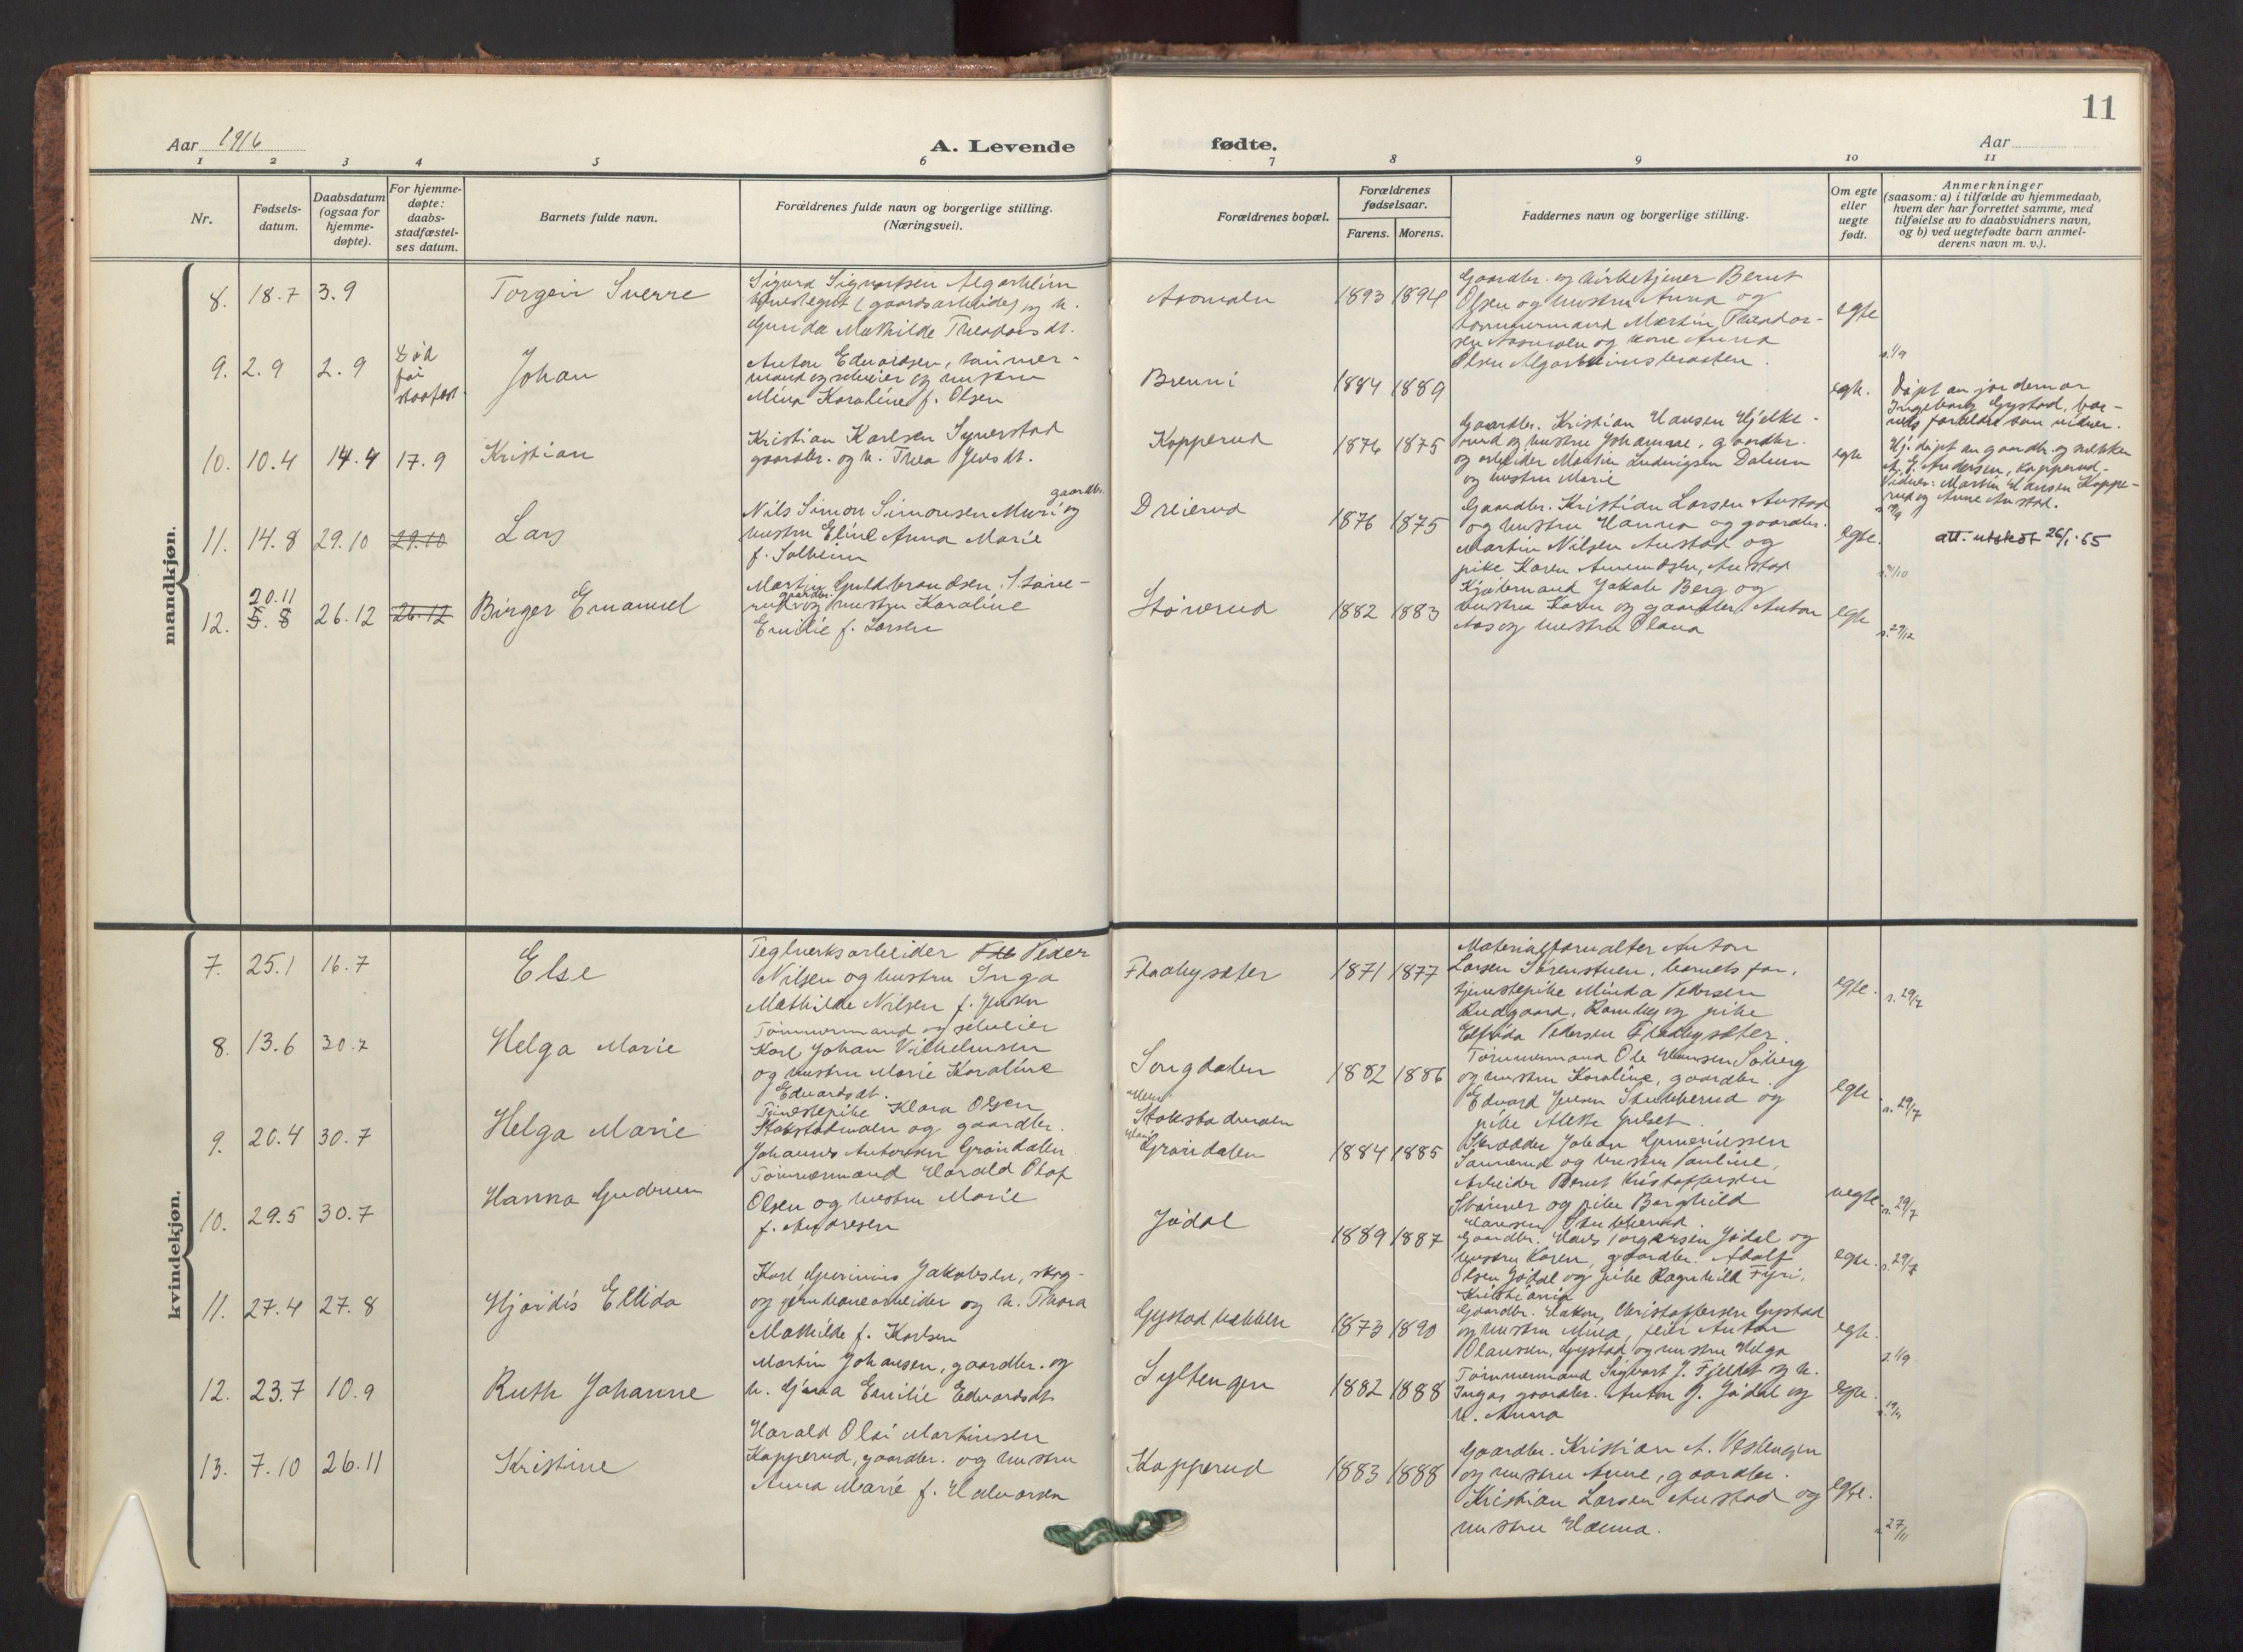 11
Aar 1916
A. Levende
fødte.
Aar
1 2 3 4 5 6 7 8 9 10 11
Nr.
Fødsels-
datum.
Daabsdatum
(ogsaa for
hjemme-
døpte).
For hjemme-
døpte:
daabs-
stadfæstel-
ses datum.
Barnets fulde navn.
Forældrenes fulde navn og borgerlige stilling.
(Næringsvei).
Forældrenes bopæl.
Forældrenes
fødselsaar.
Farens. Morens.
Faddernes navn og borgerlige stilling.
Om egte
eller
uegte
født.
Anmerkninger
(saasom: a) i tilfælde av hjemmedaab,
hvem der har forrettet samme, med
tilføielse av to daabsvidners navn,
og b) ved uegtefødte barn anmel-
derens navn m. v.).
mandkjøn.
8. 18.7 3.9
Torgeir Sverre
Sigurd Sigvartsen Algarheim
(gaardsarbeider) og h.
Gunda Mathilde Theodorsdt.
Aasmoen
1893 1894
Gaardbr. og kirketjener Bernt
Olsen og hustru Anna og
tømmermand Martin Theodor-
sen Aasmoen og kone Anna
Olsen
egte
s. 1/9
9. 2.9 2.9
Død
før
stadfæst.
Johan
Anton Edvardsen, tømmer-
mand og selveier og hustru
Mina Karoline f. Olsen
Brenni
1884 1889
egte.
Døpt av jordemor
Ingeborg Gystad, bar-
nets forældre som vidner.
10. 10.4 14.4 17.9
Kristian
Kristian Karlsen Synerstad
gaardbr. og h. Thea Jensdt.
Kopperud
1876 1875
Gaardbr. Kristian Hansen Hjelke-
rud og hustru Johanne, gaardbr.
og arbeider Martin Ludvigsen Dalum
og hustru Marie
egte
Hj. døpt av gaardbr. og snekker
A. G. Andersen, Kopperud.
Vidner: Martin Hansen Koppe-
rud og Anne Austad.
11. 14.8 29.10 29.10
Lars
gaardbr.
Nils Simon Simonsen Muri og
hustru Eline Anna Marie
f. Solheim
Dreierud
1876 1875
Gaardbr. Kristian Larsen Austad
og hustru Hanna og gaardbr.
Martin Nilsen Austad og
pike Karen Amundsen, Austad
egte.
att. utskst 26/1-65
12. 20.11
5. 8 26.12 26.12
Birger Emanuel
Martin Guldbrandsen Støve-
rud gaardbr. og hustru Karoline
Emilie f. Larsen
Støverud
1882 1883
Kjøbmand Jakob Berg og
hustru Karen og gaardbr. Anton
Aas og hustru Olava
egte
s. 29/12
kvindekjøn.
7. 25.1 16.7
Else
Teglverksarbeider Peder
Nilsen og hustru Inga
Mathilde Nilsen f. Jensen
Flaabysæter
1871 1877
Materialforvalter Anton
Larsen Sørenstuen, barnets far,
tjenestepike Minda Pedersen
Rudgaard, Romby og pike
Elfrida Pedersen Flaabysæter.
egte.
s. 29/7
8. 13.6 30.7
Helga Marie
Tømmermand og selveier
Karl Johan Vilhelmsen
og hustru Marie Karoline
Edvardsdt.
Songdalen
1882 1886
Tømmermand Ole Hansen Søberg
og hustru Karoline, gaardbr.
Edvard Jensen Skubberud og
pike Alette Julset.
egte
s. 29/7
9. 20.4 30.7
Helga Marie
Tjenestepike Klara Olsen
Stokstadmoen og gaardbr.
Johannes Antonsen Grøndalen
Hun:
Stokstadmoen
Han:
Grøndalen
1884 1885
Skrædder Johan Guneriussen
Sannerud og hustru Pauline,
Arbeider Bernt Kristoffersen
Skanner og pike Borghild
Hansen Skubberud.
uegte
s. 29/7
10. 29.5 30.7
Hanna Gudrun
Tømmermand Harald Olaf
Olsen og hustru Marie
f. Andresen
Jødal
1889 1887
Gaardbr. Hans Torgersen Jødal og
hustru Karen, gaardbr. Adolf
Olsen Jødal og pike Ragnhild Fyri,
Kristiania
egte.
s. 29/7
11. 27.4 27.8
Hjørdis Ellida
Karl Guninius Jakobsen, skog-
og jernbanearbeider og h. Thora
Mathilde f. Karlsen
Gystadbakken
1873 1890
Gaardbr. Hakon Christoffersen Gystad
og hustru Mina, feier Anton
Olaussen, Gystad og hustru Helga
egte.
s. 1/9
12. 23.7 10.9
Ruth Johanne
Martin Johansen, gaardbr. og
h. Gina Emilie Edvardsdt.
Syltengen
1882 1888
Tømmermand Sigvart J. Fjeldet og h.
Inga, gaardbr. Anton G. Jødal og
h. Anna
egte.
13. 7.10 26.11
Kristine
Harald Olai Martinsen
Kopperud, gaardbr. og hustru
Anna Marie f. Halvorsen
Kopperud
1883 1888
Gaardbr. Kristian A. Vestengen
og hustru Anne, gaardbr.
Kristian Larsen Austad og
hustru Hanna.
egte.
27/11